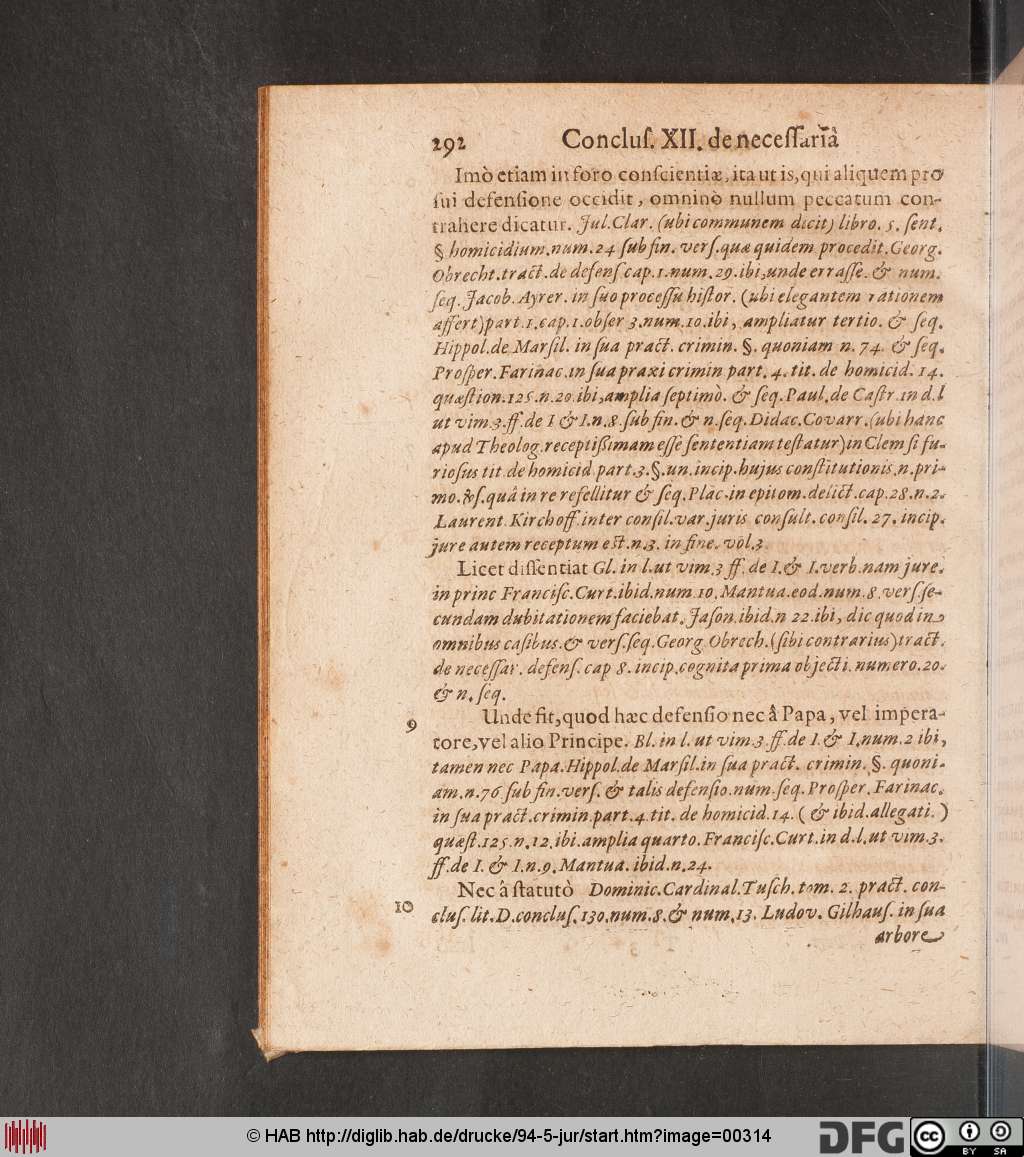 292 Concluſ. XII. de neceſſariâ
Imò etiam in foro conſcientiæ, ita ut is, qui aliquem pro
ſui defenſione occidit, omninò nullum peccatum con-
trahere dicatur. Jul. Clar. (ubi communem dicit) libro. 5. ſent.
§ homicidium. num. 24 ſub fin. verſ. quæ quidem procedit. Georg.
Obrecht. tract. de defenſ cap. 1. num. 29. ibi, unde erraſſe. & num.
ſeq. Jacob. Ayrer. in ſuo proceſſu hiſtor. (ubi elegantem rationem
affert) part. 1. cap. 1. obſer 3. num. 10. ibi, ampliatur tertio. & ſeq.
Hippol. de Marſil. in ſua pract. crimin. §. quoniam n. 74. & ſeq.
Proſper. Farinac. in ſua praxi crimin part. 4. tit. de homicid. 14.
quæſtion. 125. n. 20. ibi, amplia ſeptimò. & ſeq. Paul. de Caſtr. in d. l
ut vim. 3. ff. de I & I. n. 8. ſub fin. & n. ſeq. Didac. Covarr. (ubi hanc
apud Theolog. receptißimam eſſe ſententiam teſtatur) in Clem ſi fu-
rioſus tit. de homicid part. 3. §. un. incip. hujus conſtitutionis. n. pri-
mo. & ſ. quâ in re refellitur & ſeq. Plac. in epitom. delict. cap. 28. n. 2.
Laurent. Kirchoff. inter conſil. var. juris conſult. conſil. 27. incip.
jure autem receptum eſt. n. 3. in fine. vol. 3
Licet diſſentiat Gl. in l. ut vim. 3 ff. de I. & I. verb. nam jure.
in princ Franciſc. Curt. ibid. num. 10. Mantua. eod. num. 8. verſ. ſe-
cundam dubitationem faciebat. Jaſon. ibid. n 22. ibi, dic quod in
omnibus caſibus. & verſ. ſeq. Georg Obrech. (ſibi contrarius) tract.
de neceſſar. defenſ. cap 8. incip. cognita prima objecti. numero. 20.
& n. ſeq.
9 Unde fit, quod hæc defenſio nec â Papa, vel impera-
tore, vel alio Principe. Bl. in l. ut vim. 3. ff. de I. & I. num. 2 ibi,
tamen nec Papa. Hippol. de Marſil. in ſua pract. crimin. §. quoni-
am. n. 76 ſub fin. verſ. & talis defenſio. num. ſeq. Proſper. Farinac.
in ſua pract. crimin. part. 4. tit. de homicid. 14. ( & ibid. allegati. )
quæſt. 125. n. 12. ibi. amplia quarto. Franciſc. Curt. in d. l. ut vim. 3.
ff. de I. & I. n. 9. Mantua. ibid. n. 24.
Nec â ſtatutò Dominic. Cardinal. Tuſch. tom. 2. pract. con-
10 cluſ. lit. D. concluſ. 130. num. 8. & num. 13. Ludov. Gilhauſ. in ſua
arbore
© HAB http://diglib.hab.de/drucke/94-5-jur/start.htm?image=00314
DFG
cc BY SA